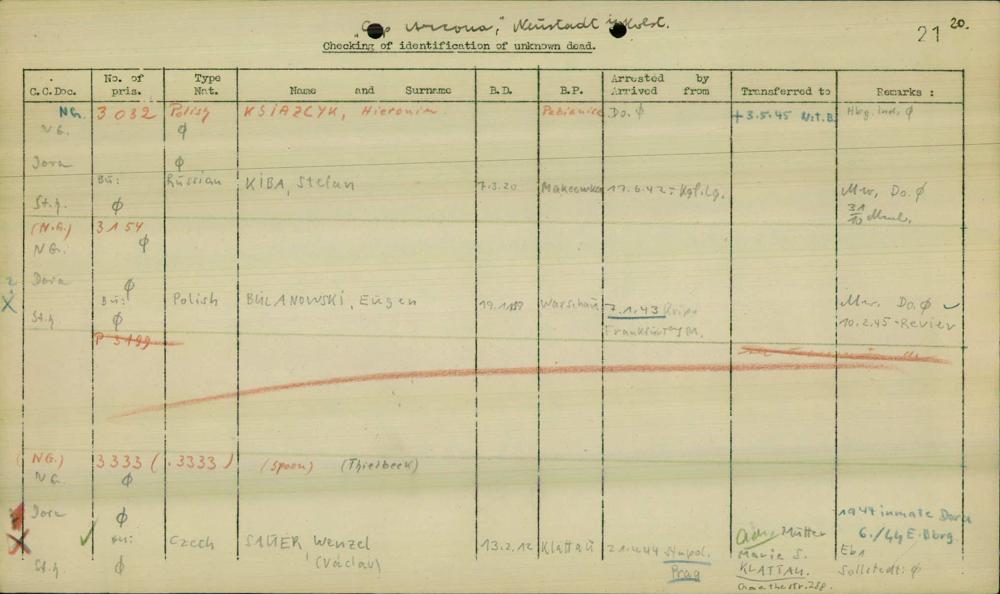 "Cap Arcona," Neustadt i. Holst.
21 20.
Checking of identification of unknown dead.
C.C.Doc. No. of pris. Type Nat. Name and Surname B.D. B.P. Arrested by Arrived from Transferred to Remarks :
NG. 3 032 Polish KSIAZCYK, Hieronim Pabianice Do. Ø + 3.5.45 N.t.B. Hbg. ind. Ø
NG. Ø
Dora Ø
Bu: Russian KIBA, Stefan 7.3.20 Makeewka 17.6.42 = Kgf.Lg. Mw, Do. Ø
St.g. Ø 31/10
(N.G.) 3154
NG. Ø
Dora Ø
Bu: Polish BULANOWSKI, Eugen Warschau 7.1.43 Kripo Mw. Do. Ø
St.g. Ø Frankfurt/M. 10.2.45 - Revier
P 3199
(NG.) 3333 (.3333) (Spoon) (Thierbeck)
NG. Ø
Dora Ø 1944 inmate Dora
Bu: Czech SAUER Wenzel 13.2.12 Klattau 21.2.44 Stapol. Adr. Mutter 6./44 E. Bbrg.
(Václav) Prag Marie S.
St.g. Ø KLATTAU. Sollstedt: Ø